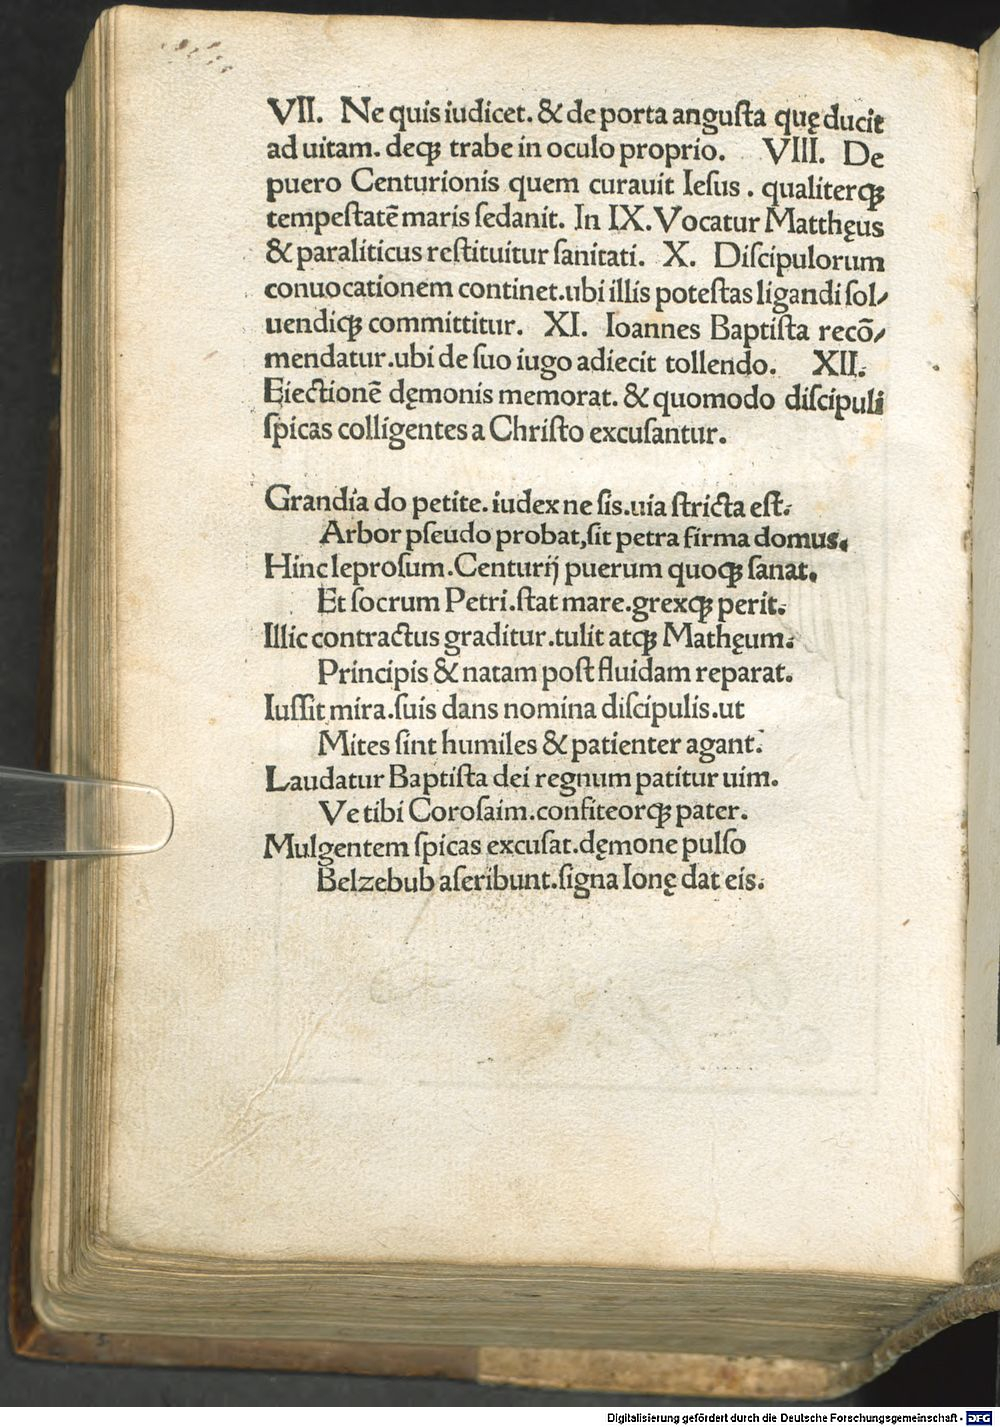 VII. Ne quis iudicet. & de porta angusta quę ducit
ad uitam. deqꝫ trabe in oculo proprio. VIII. De
puero Centurionis quem curauit Iesus . qualiterqꝫ
tempestatē maris sedanit. In IX. Vocatur Matthęus
& paraliticus restituitur sanitati. X. Discipulorum
conuocationem continet. ubi illis potestas ligandi sol⸗
uendiqꝫ committitur. XI. Ioannes Baptista recō⸗
mendatur. ubi de suo iugo adiecit tollendo. XII.
Eiectionē dęmonis memorat. & quomodo discipuli
spicas colligentes a Christo excusantur.
Grandia do petite. iudex ne sis. uia stricta est.
Arbor pseudo probat, sit petra firma domus.
Hinc leprosum. Centurij puerum quoqꝫ sanat.
Et socrum Petri. stat mare. grexqꝫ perit.
Illic contractus graditur. tulit atqꝫ Mathęum.
Principis & natam post fluidam reparat.
Iussit mira. suis dans nomina discipulis. ut
Mites sint humiles & patienter agant.
Laudatur Baptista dei regnum patitur uim.
Ve tibi Corosaim. confiteorqꝫ pater.
Mulgentem spicas excusat. dęmone pulso
Belzebub aseribunt. signa Ionę dat eis.
Digitalisierung gefördert durch die Deutsche Forschungsgemeinschaft - DFG